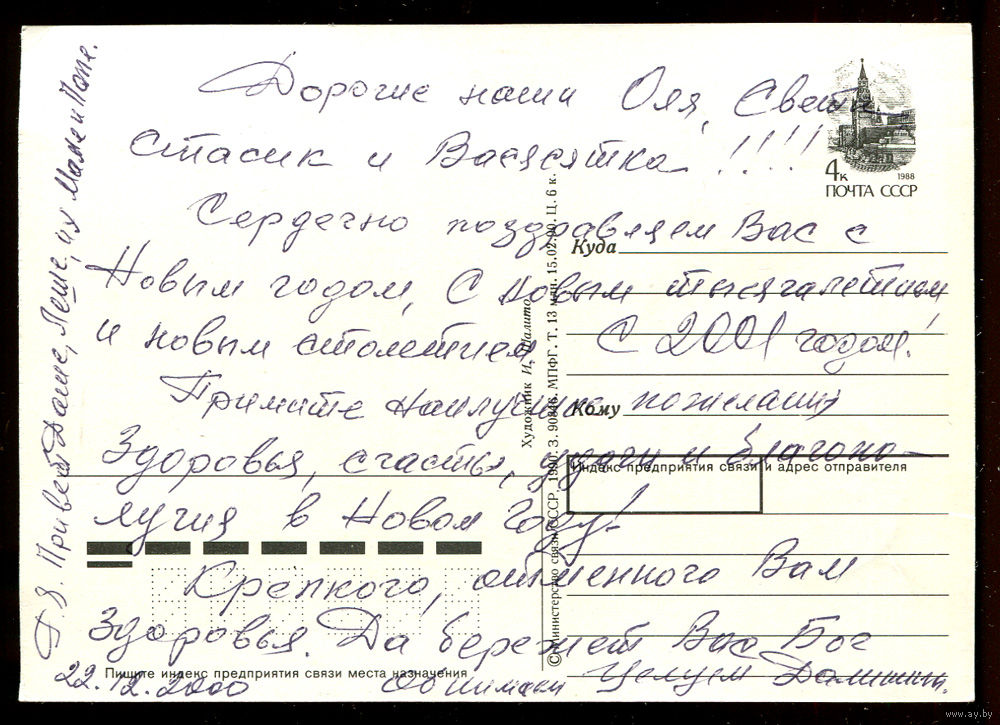 Дорогие наши Оля, Света,
Стасик и Васясятка!!!!
Сердечно поздравляем Вас с
Новым годом, С новым тысячалетием
и новым столетием С 2001 годом!
Примите наилучшие пожелания
Здоровья, счастья, удачи и благопо-
лучия в Новом Году!
Крепкого, отменного Вам
Здоровья. Да бережет Вас Бог
22.12.2000 Обнимаем Целуем
Привет Даше, Леше, их Маме и Папе.
4к
1988
ПОЧТА СССР
Куда
Кому
Индекс предприятия связи и адрес отправителя
Пишите индекс предприятия связи места назначения
Художник И. Шалито
© Министерство связи СССР, 1990. З. 90346. МПФГ. Т. 13 млн. 15.02.90. Ц. 6 к.
www.ay.by